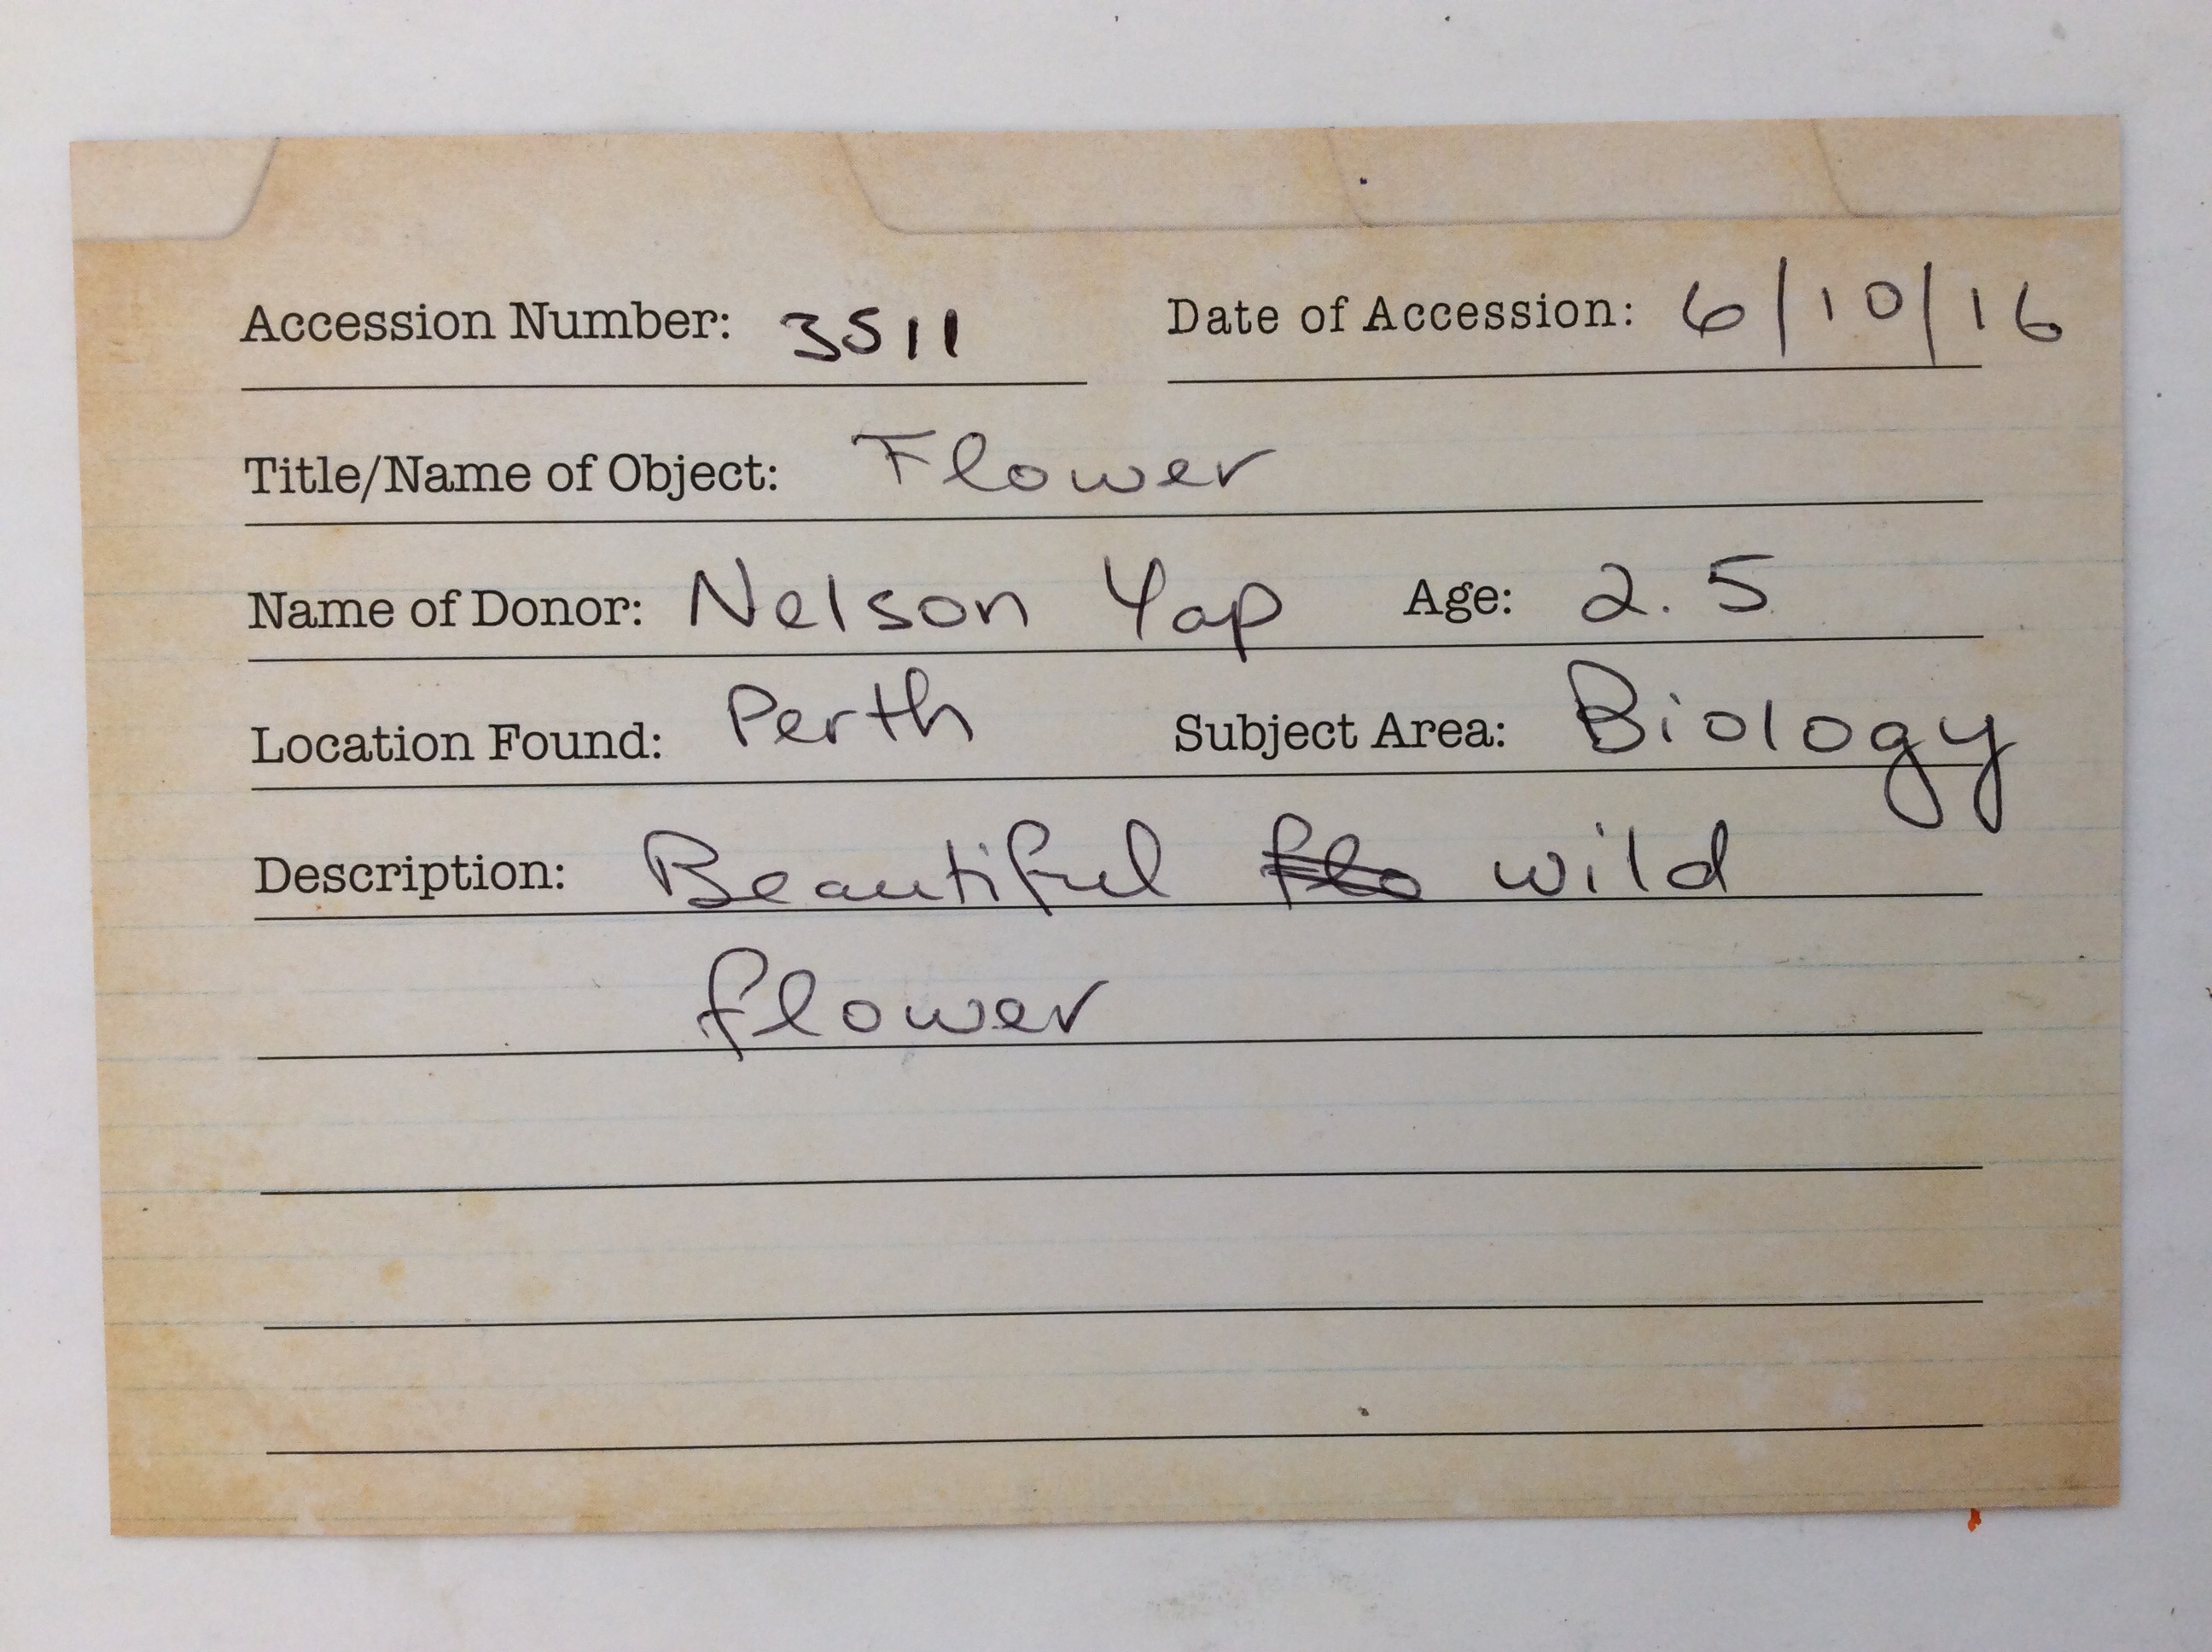 Accession Number: 3511 Date of Accession: 6/10/16
Title/Name of Object: Flower
Name of Donor: Nelson Yap Age: 2.5
Location Found: Perth Subject Area: Biology
Description: Beautiful flo wild
flower